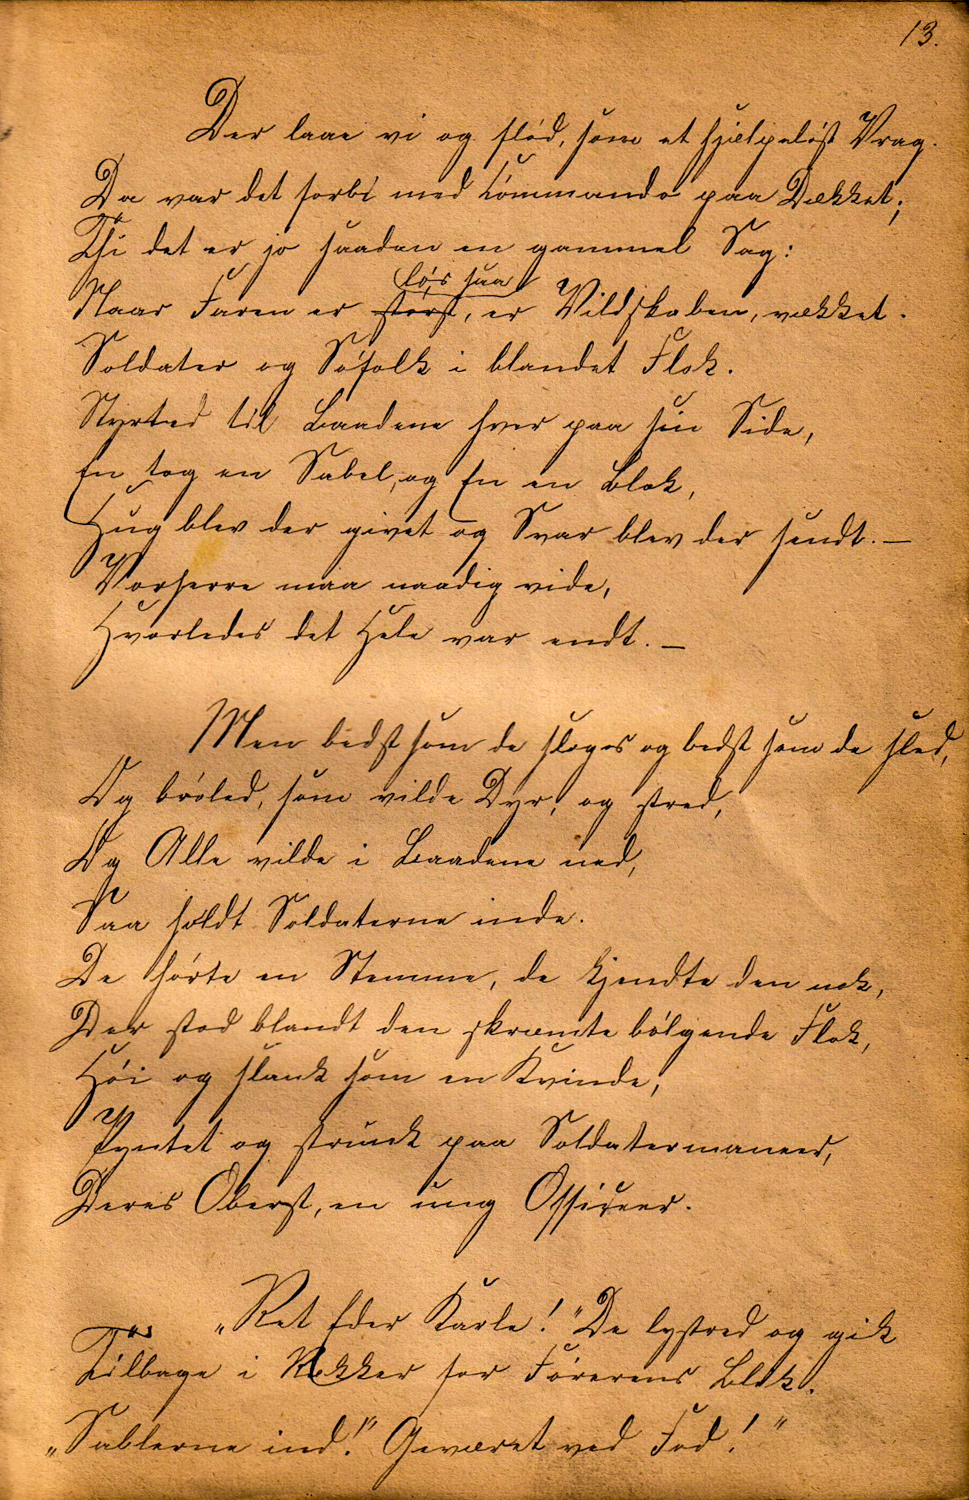 13.
Der laae vi og flød, som et hjælpeløst Vrag.
Da var det forbi med Commando paa Dækket;
Thi det er jo saadan en gammel Sag:
løs saa
Naar Faren er størst, er Vildskaben, vækket.
Soldater og Søfolk i blandet Flok.
Styrted til Baadene hver paa sin Side,
En tog en Sabel, og En en Blok,
Hug blev der givet og Svar blev der sendt. —
Vorherre maa naadig vide,
Hvorledes det Hele var endt. —
Men bedst som de sloges og bedst som de sled,
Og brøled, som vilde Dyr, og stred,
Og Alle vilde i Baadene ned,
Saa holdt Soldaterne inde.
De hørte en Stemme, de kjendte den nok,
Der stod blandt den skræmte bølgende Flok,
Høi og slank som en Kvinde,
Pyntet og strunk paa Soldatermaneer,
Deres Oberst, en ung Officeer.
„Ret Eder Karle!" De lystred og gik
Tilbage i Rækker for Førerens Blik.
„Sablerne ind!" Geværet ved Fod!"